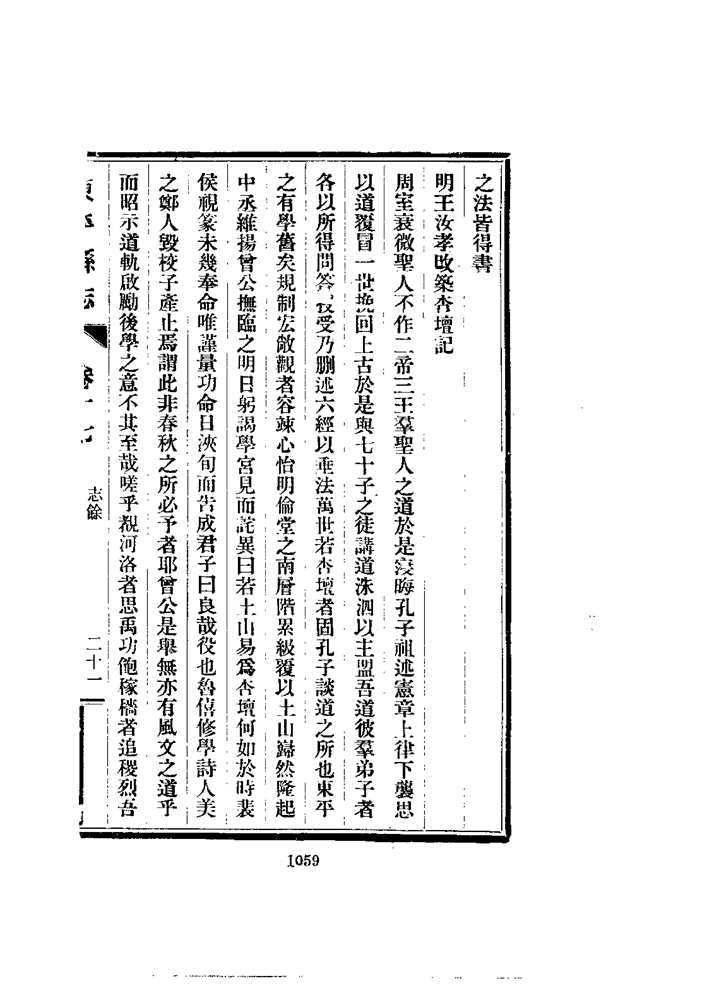 之法皆得書
明王汝孝改築杏壇記
周室衰微聖人不作二帝三王羣聖人之道於是寖晦孔子祖述憲章上律下襲思
以道覆冒一世挽回上古於是與七十子之徒講道洙泗以主盟吾道彼羣弟子者
各以所得問答受乃刪述六經以垂法萬世若杏壇者固孔子談道之所也東平
之有學舊矣規制宏敞觀者容竦心怡明倫堂之南層階累級覆以土山巋然隆起
中丞維揚曾公撫臨之明日躬謁學宮見而詫異曰若土山易爲杏壇何如於時裴
侯視篆未幾奉命唯謹量功命日浹旬而告成君子曰良哉役也魯僖修學詩人美
之鄭人毀校子產止焉謂此非春秋之所必予者耶曾公是舉無亦有風文之道乎
而昭示道軌啟勵後學之意不其至哉嗟乎覩河洛者思禹功飽稼穡者追稷烈吾
東平縣志
卷十七
志餘
二十一
1059